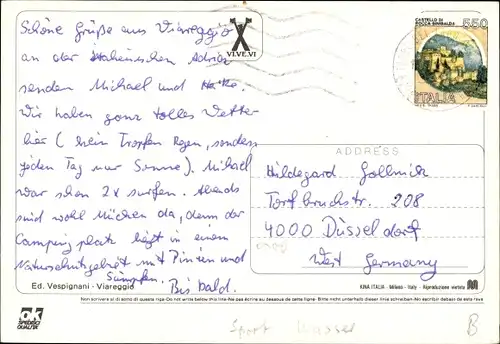 Schöne Grüße aus Viareggio
an der italienischen Adria
senden Michael und Heike.
Wir haben ganz tolles Wetter
hier (kein Tropfen Regen, sondern
jeden Tag nur Sonne). Michael
war schon 2x surfen. Abends
sind wohl Mücken da, denn der
Campingplatz liegt in einem
Naturschutzgebiet mit Pinien und
Sümpfen. Bis bald.
VI.VE.VI
CASTELLO DI
ROCCA SINIBALDA
550
ITALIA
ADDRESS
Hildegard Gollnick
Torfbruchstr. 208
4000 Düsseldorf
West Germany
Ed. Vespignani - Viareggio
KINA ITALIA - Milano - Italy - Riproduzione vietata
Non scrivere al di sotto di questa riga-Do not write below this line-Ne pas écrire au dessous de cette ligne- Bitte nicht unterhalb dieser linie schreiben-No escribir debajo de esta raya
ak
SPEDISCI
QUALITA'
Sport Wasser
B